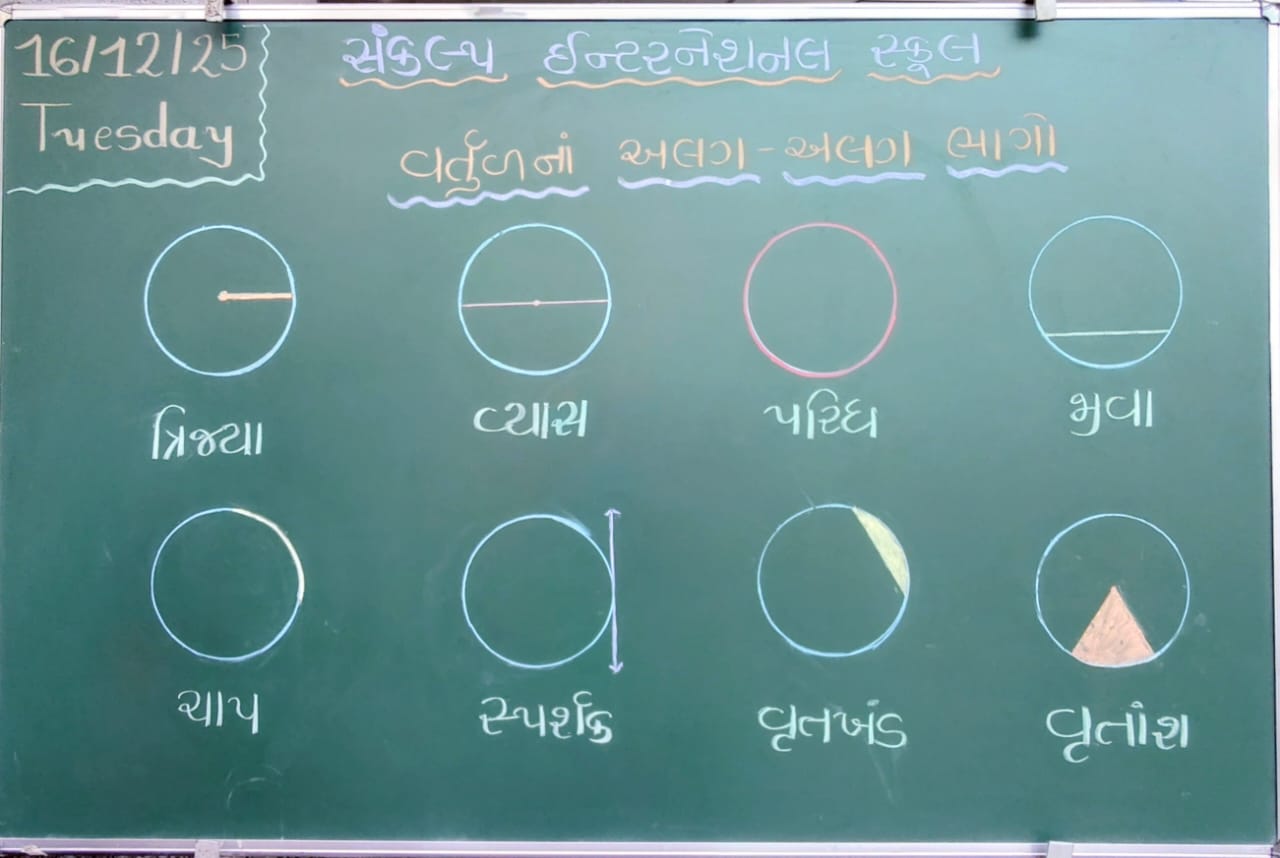 16/12/25
Tuesday
સંકલ્પ ઈન્ટરનેશનલ સ્કૂલ
વર્તુળનાં અલગ-અલગ ભાગો
ત્રિજ્યા વ્યાસ પરિઘ જીવા
ચાપ સ્પર્શક વૃતખંડ વૃતાંશ